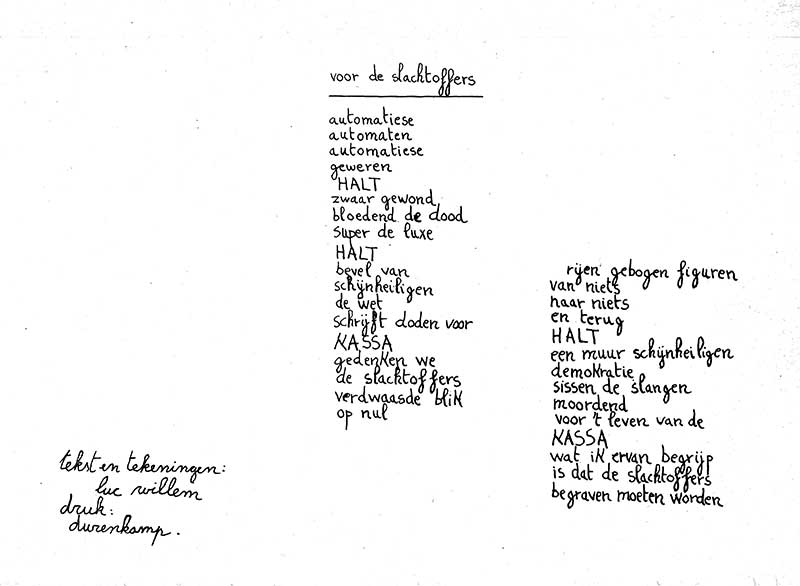 voor de slachtoffers
automatiese
automaten
automatiese
geweren
HALT
zwaar gewond
bloedend de dood
super de luxe
HALT
bevel van
schijnheiligen
de wet
schrijft doden voor
KASSA
gedenken we
de slachtoffers
verdwaasde blik
op nul
rijen gebogen figuren
van niets
naar niets
en terug
HALT
een muur schijnheiligen
demokratie
sissen de slangen
moordend
voor 't leven van de
KASSA
wat ik ervan begrijp
is dat de slachtoffers
begraven moeten worden
tekst en tekeningen:
luc willem
druk:
durenkamp.